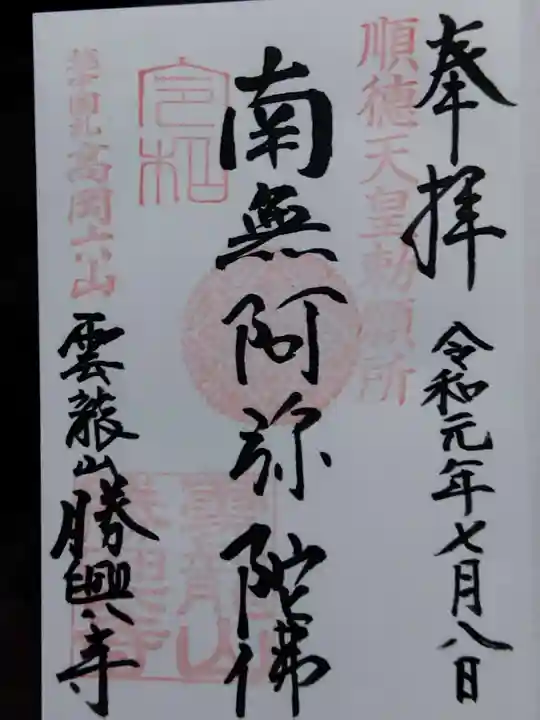 奉拝
令和元年七月八日
順徳天皇勅願所
南無阿弥陀佛
高岡
雲龍山勝興寺
雲龍山
勝興寺